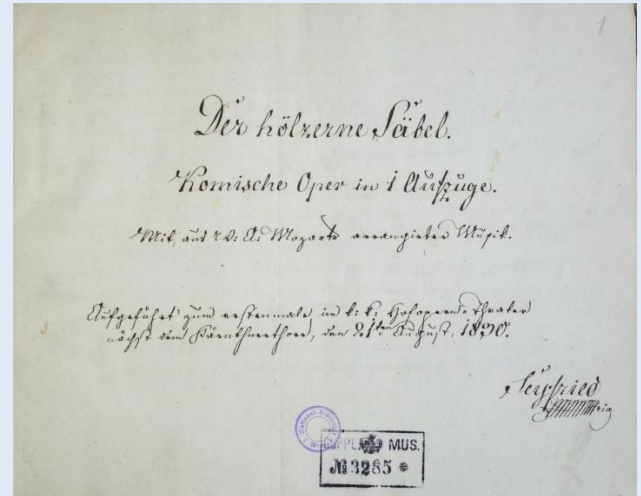 1
Der hölzerne Säbel.
Komische Oper in 1 Aufzuge.
Mit, aus W: A: Mozarts arrangirter Musik.
Aufgeführt zum erstenmale im k: k: Hofopern-Theater
nächst dem Kärnthnerthore, den 21ten August, 1830.
Seyfried
SUPPL. MUS.
№ 3285 *